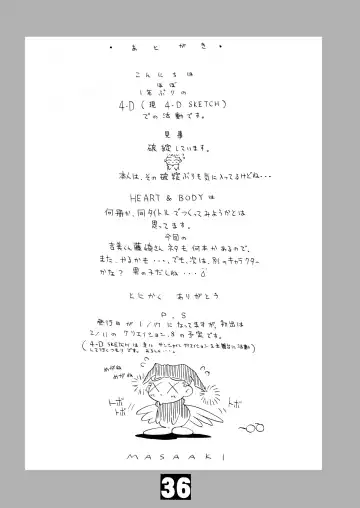 ・あとがき・
こんにちは
ほぼ
1年ぶりの
4-D(現 4-D SKETCH)
での活動です。
見事
破綻しています。
本人は、その破綻ぶりも気に入ってるけどね・・・
HEART & BODYは
何冊か、同タイトルでつくってみようかとは
思ってます。
今回の
吉美くん藤崎さんネタも何本かあるので、
また、やるかも・・・。でも、次は、別のキャラクター
かな? 男の子だしね・・・
とにかく ありがとう
P.S
発行日が1/17になってますが、初出は
2/11のクリエイション.8の予定です。
めがね
めがね
トボ
トボ
トボ
トボ
MASAAKI
36